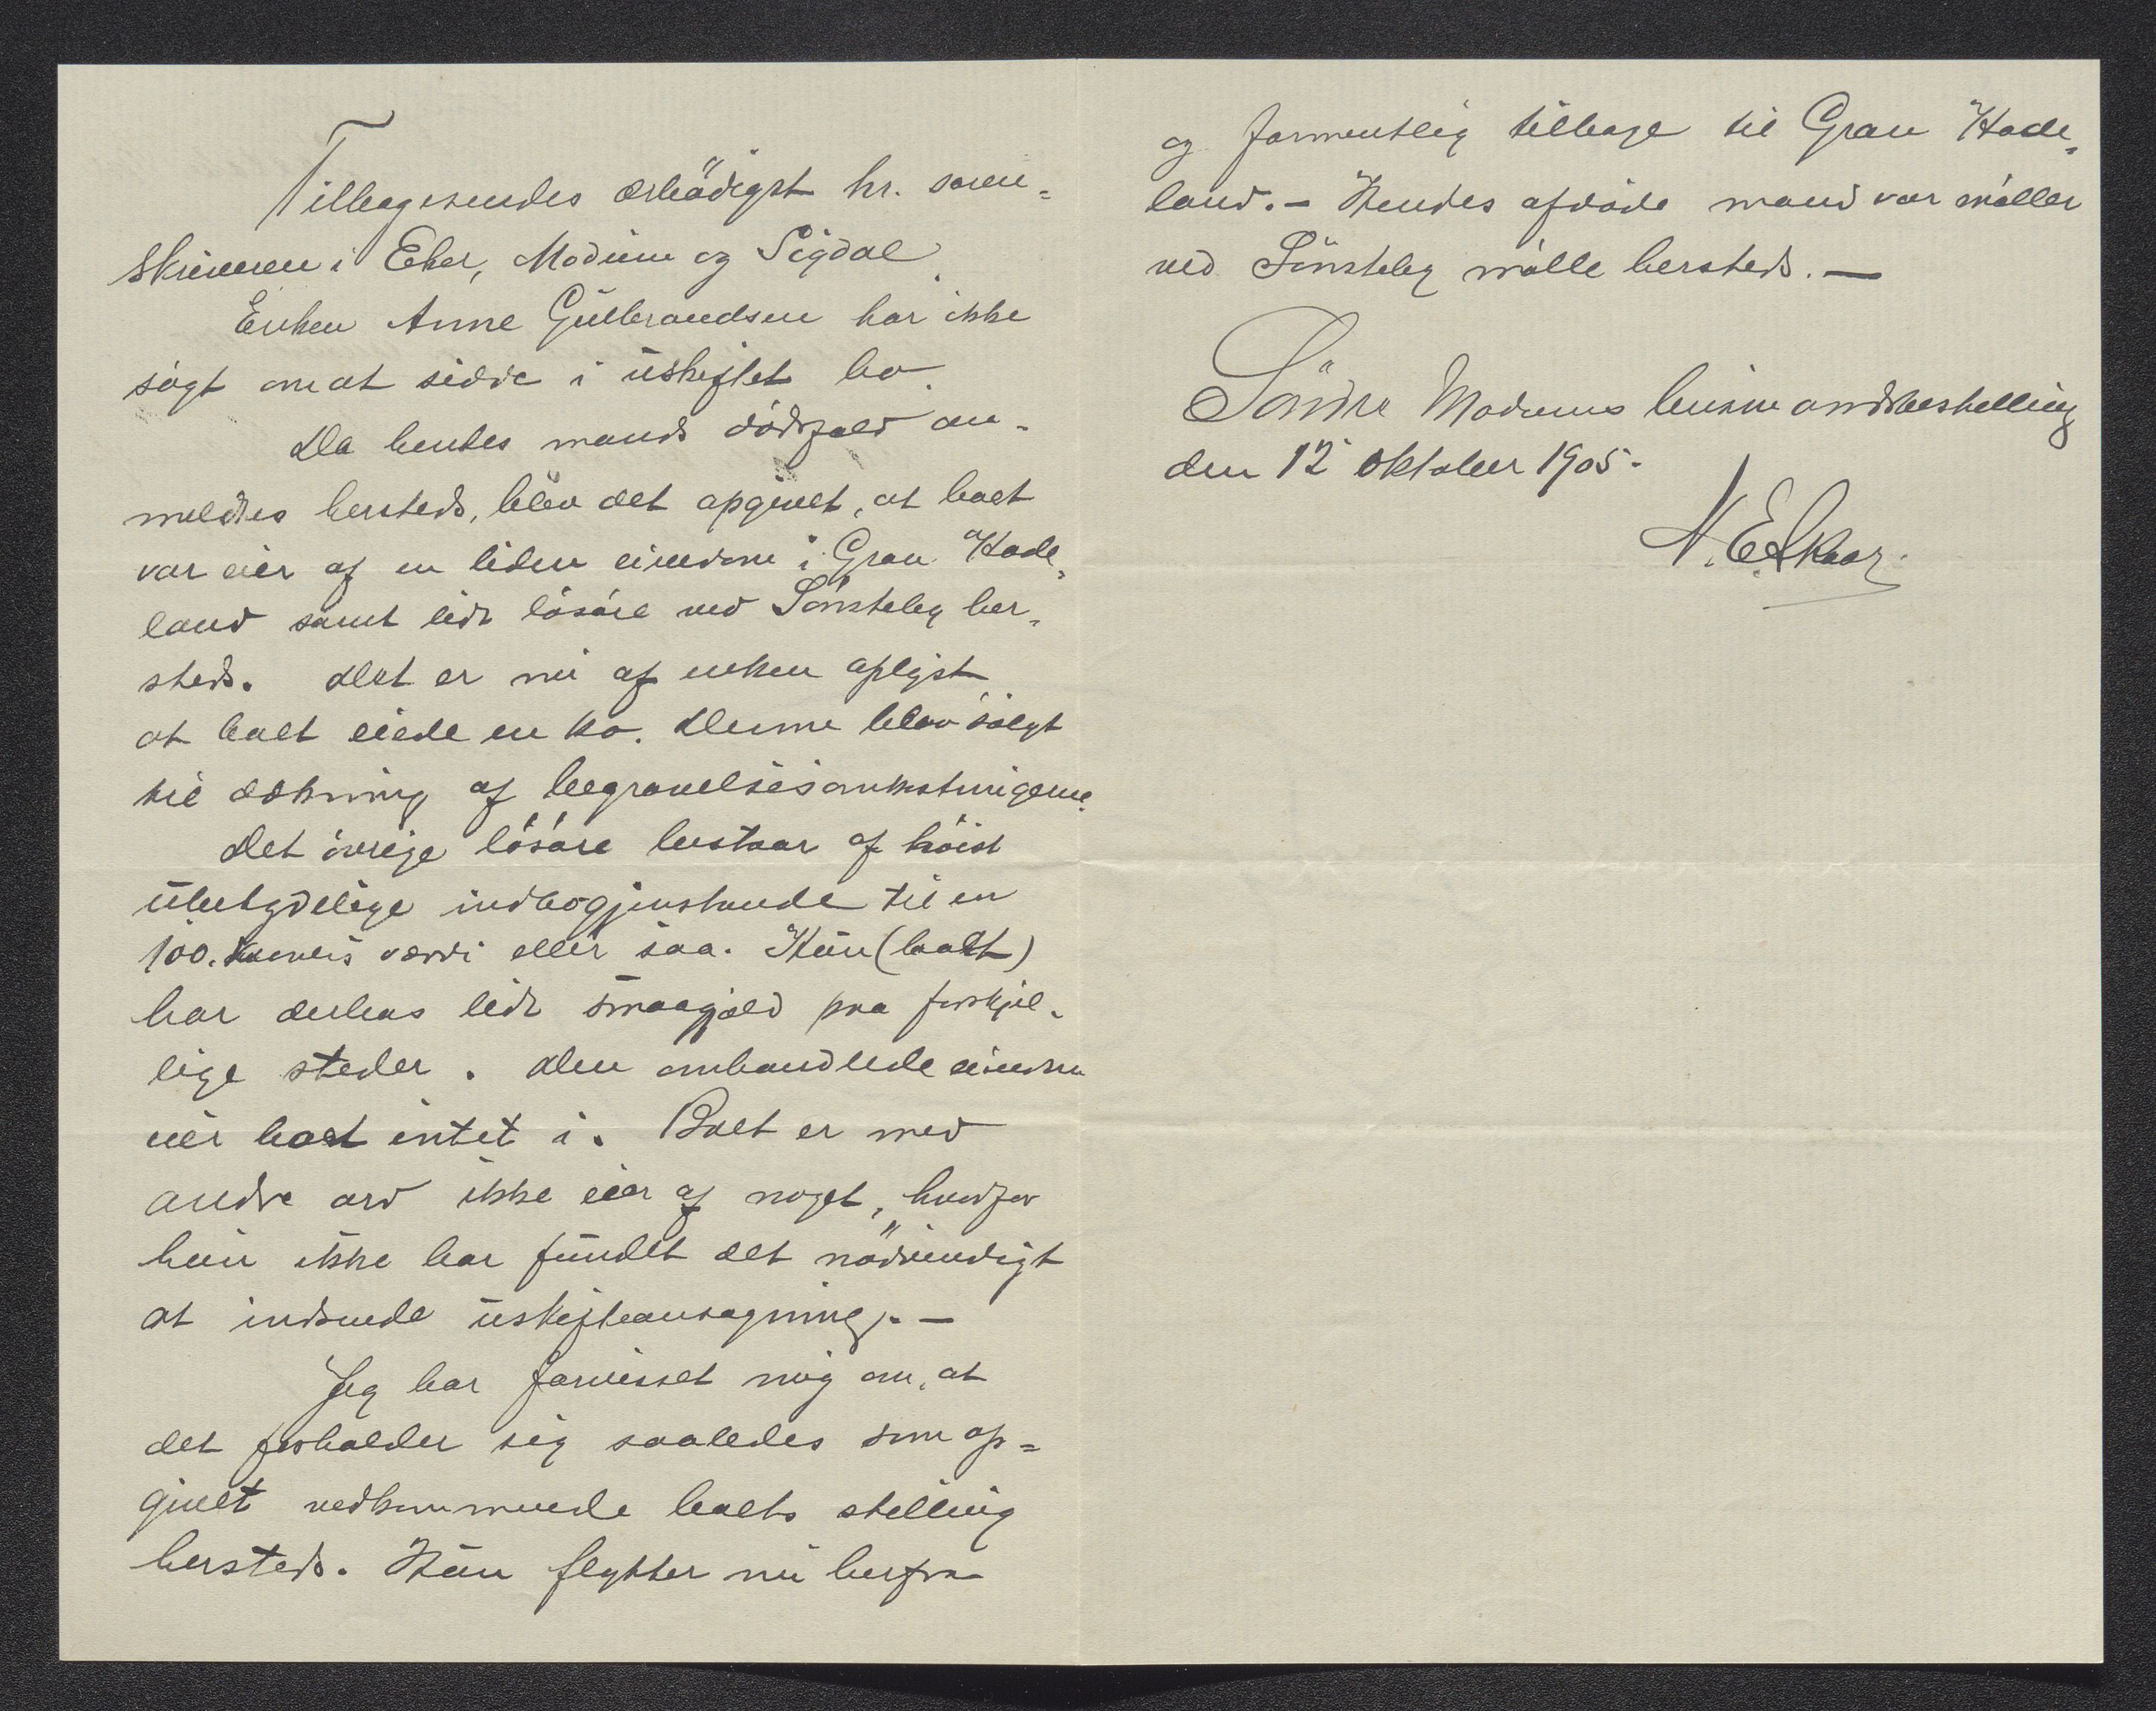 Tilbagesendes ærbödigst hr. soren=
skriveren i Eker, Modum og Sigdal.
Enken Anne Gulbrandsen har ikke
sögt om at sidde i uskiftet bo.
Da hendes mands dödsfald an-
meldtes hersteds, blev det opgivet, at boet
var eier af en liden eiendom i Gran Hade-
land samt lidt lösöre ved Sönsteby her-
steds. Det er nu af enken oplyst
at boet eiede en ko. Denne blev solgt
til dækning af begravelsesomkostningerne.
Det övrige lösöre bestaar af höist
ubetydelige indbogjenstande til en
100. kroners værdi eller saa. Hun (boet)
har derhos lidt smaagjæld paa forskjel-
lige steder. Den omhandlede eiendom
eier boet intet i. Boet er med
andre ord ikke eier af noget, hvorfor
hun ikke har fundet det nödvendigt
at indsende uskifteansögning. —
Jeg har forvisset mig om, at
det forholder sig saaledes som op=
givet vedkommende boets stilling
hersteds. Hun flytter nu herfra
og formentlig tilbage til Gran Hade=
land. – Hendes afdöde mand var möller
ved Sönsteby mölle hersteds. —
Söndre Modums lensmandsbestilling
den 12 oktober 1905.
N. E. Skaar.